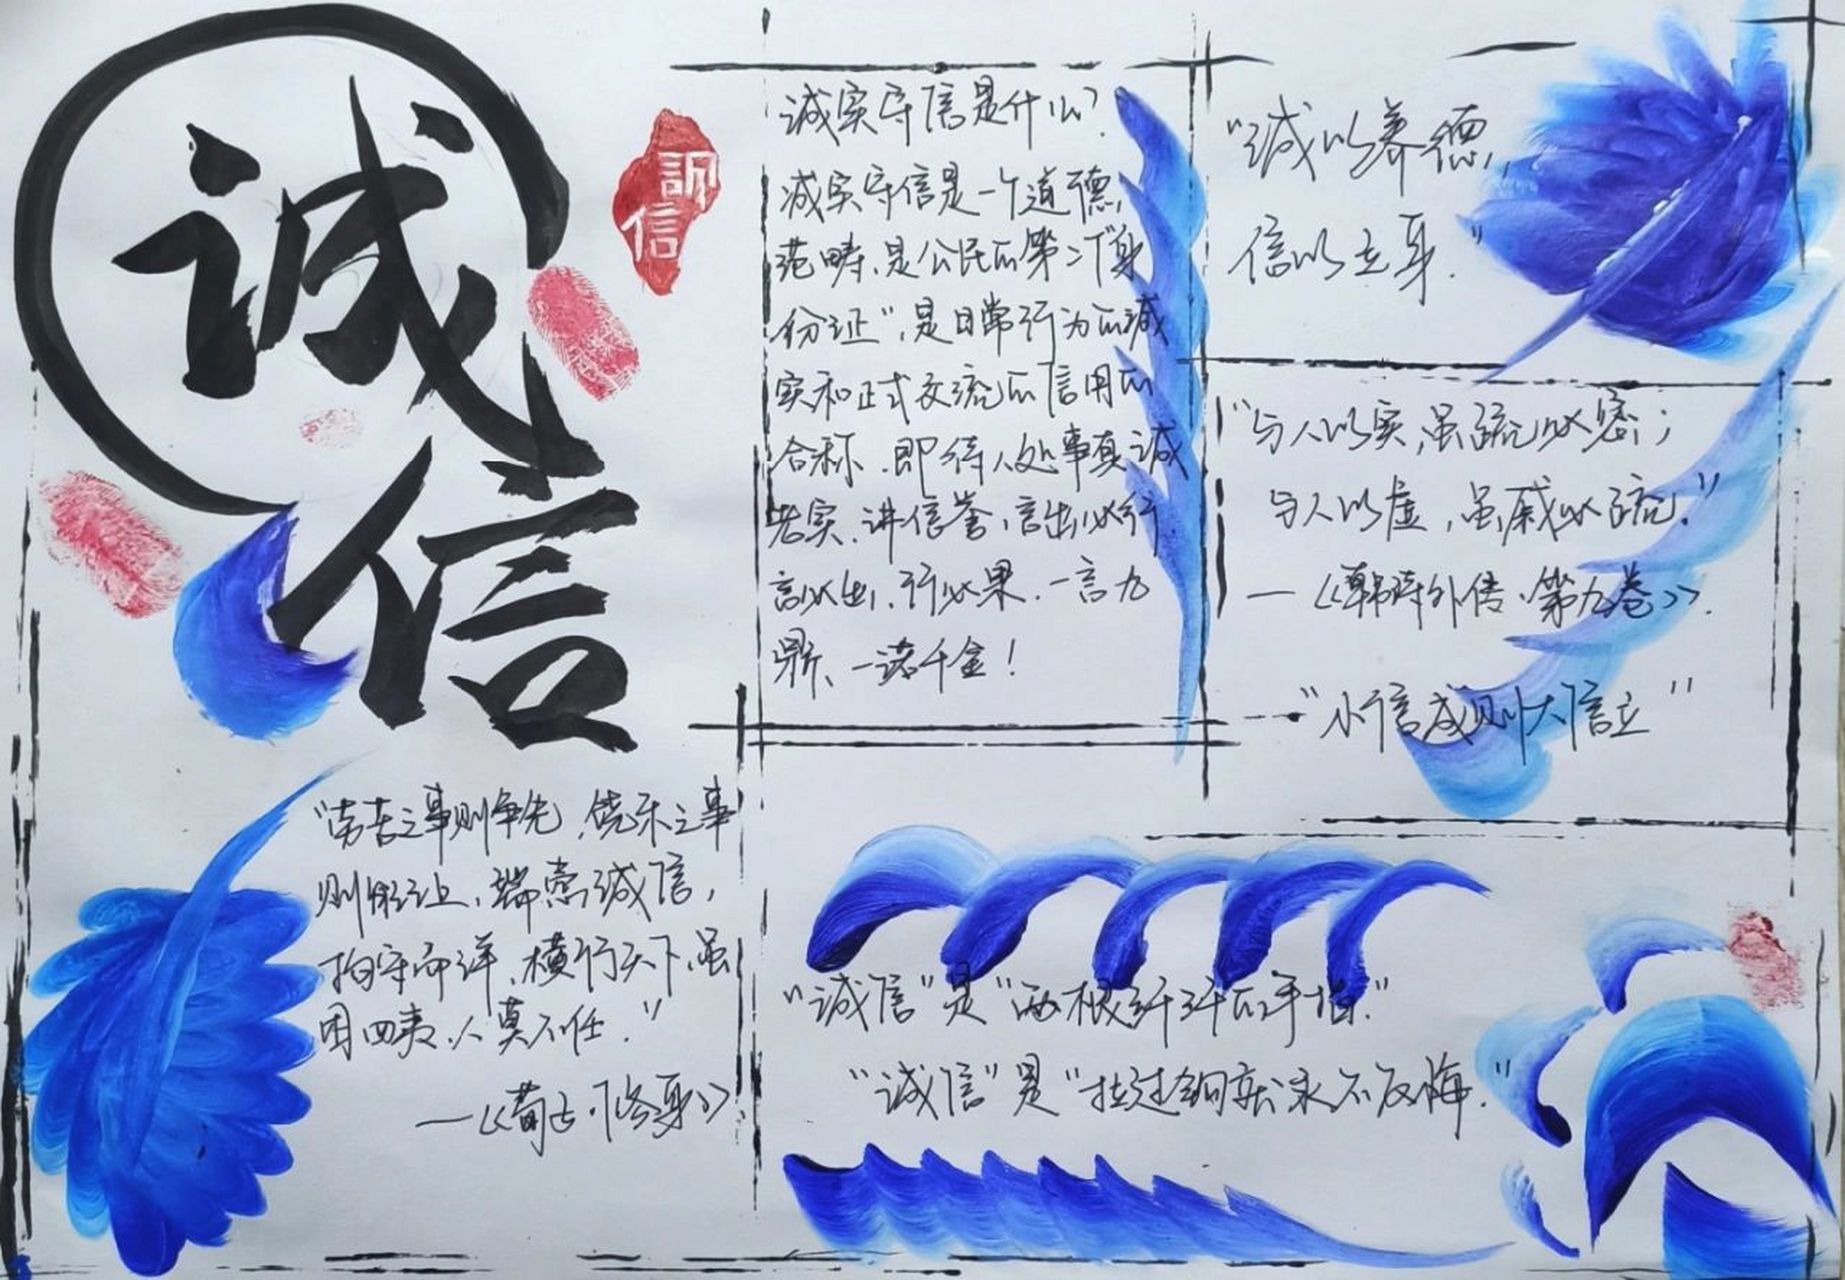 诚
信
誠信
诚实守信是什么?
诚实守信是一个道德
范畴、是公民的第二个"身
份证",是日常行为的诚
实和正式交流的信用的
合称.即待人处事真诚
老实、讲信誉,言出必行
言必出,行必果.一言九
鼎、一诺千金!
"诚以养德,
信以立身."
"与人以实,虽疏必密;
与人以虚,虽戚必疏."
—《韩诗外传·第九卷》.
"小信成则大信立"
"劳苦之事则争先,饶乐之事
则能让,端悫诚信,
拘守而详,横行天下,虽
困四夷,人莫不任."
—《荀子·修身》
"诚信"是"两根纤纤的手指."
"诚信"是"拉过钩永永不反悔."